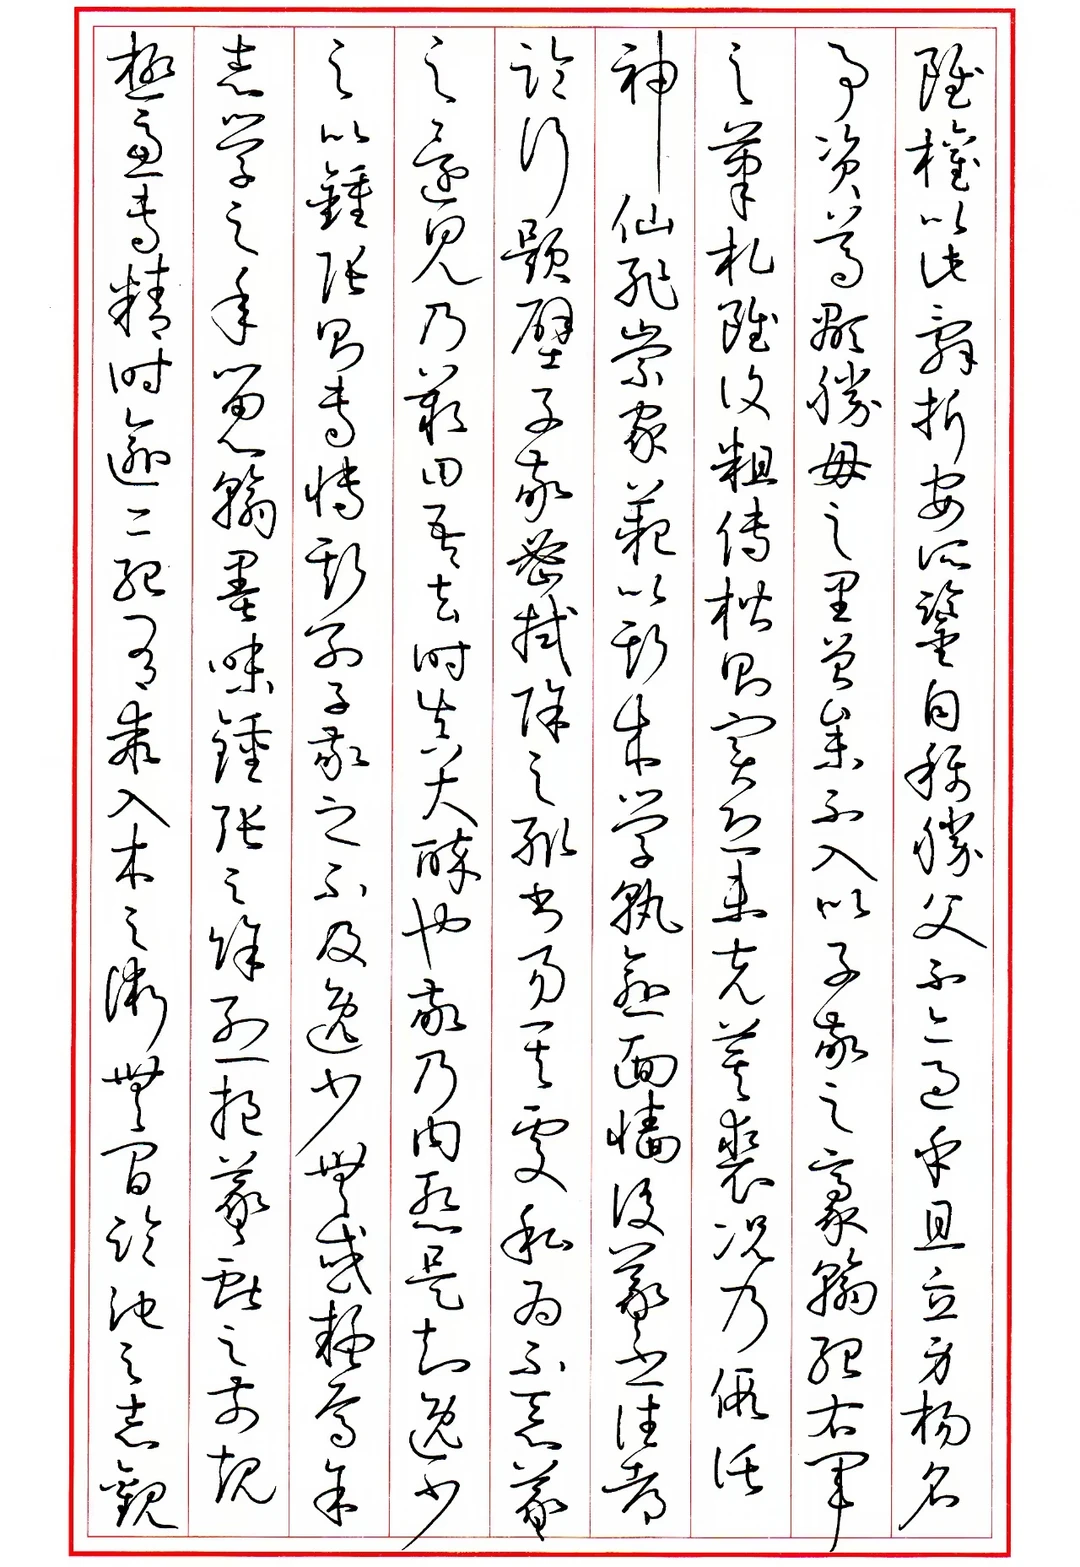 雖權以此辭折安所鑒自稱勝父不亦過乎且立身揚名
事資尊顯勝母之里曾參不入以子敬之豪翰紹右軍
之筆札雖復粗傳楷則實恐未克箕裘況乃假託
神仙恥崇家範以斯成學孰愈面牆後羲之往都
臨行題壁子敬密拭除之輒書易其處私為不惡羲
之還見乃嘆曰吾去時真大醉也敬乃內慚是知逸少
之比鍾張則專博斯別子敬之不及逸少無或疑焉余
志學之年留心翰墨味鍾張之餘烈挹羲獻之前規
極慮專精時逾二紀有乖入木之術無間臨池之志觀